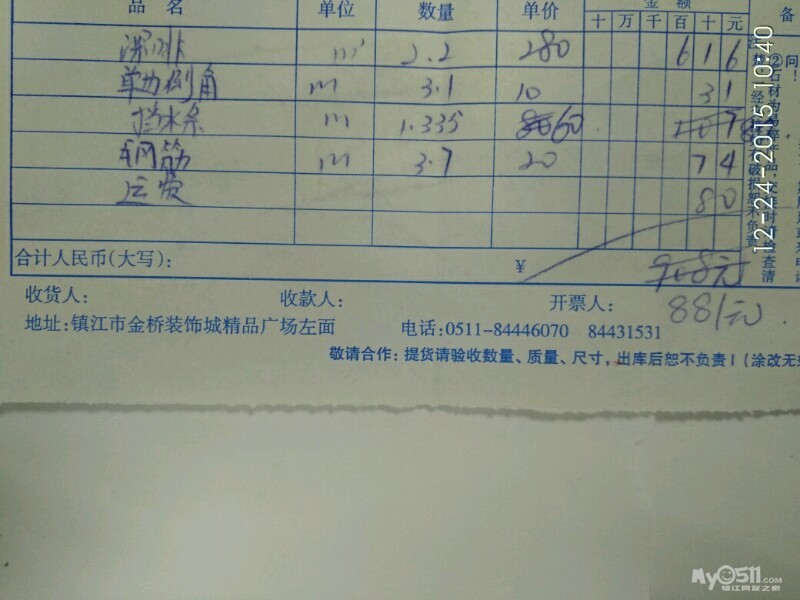 品名 单位 数量 单价 金额 备
十 万 千 百 十 元
深咖啡 m² 2.2 280 616
单边倒角 m 3.1 10 31
挡水条 m 1.335 60
钢筋 m 3.7 20 74
运费 80
合计人民币(大写): ¥ 908元
881元
收货人: 收款人: 开票人:
地址:镇江市金桥装饰城精品广场左面 电话:0511-84446070 84431531
敬请合作:提货请验收数量、质量、尺寸,出库后恕不负责!(涂改无
12-24-2015 10:40
My0511.COM
镇江网友之家